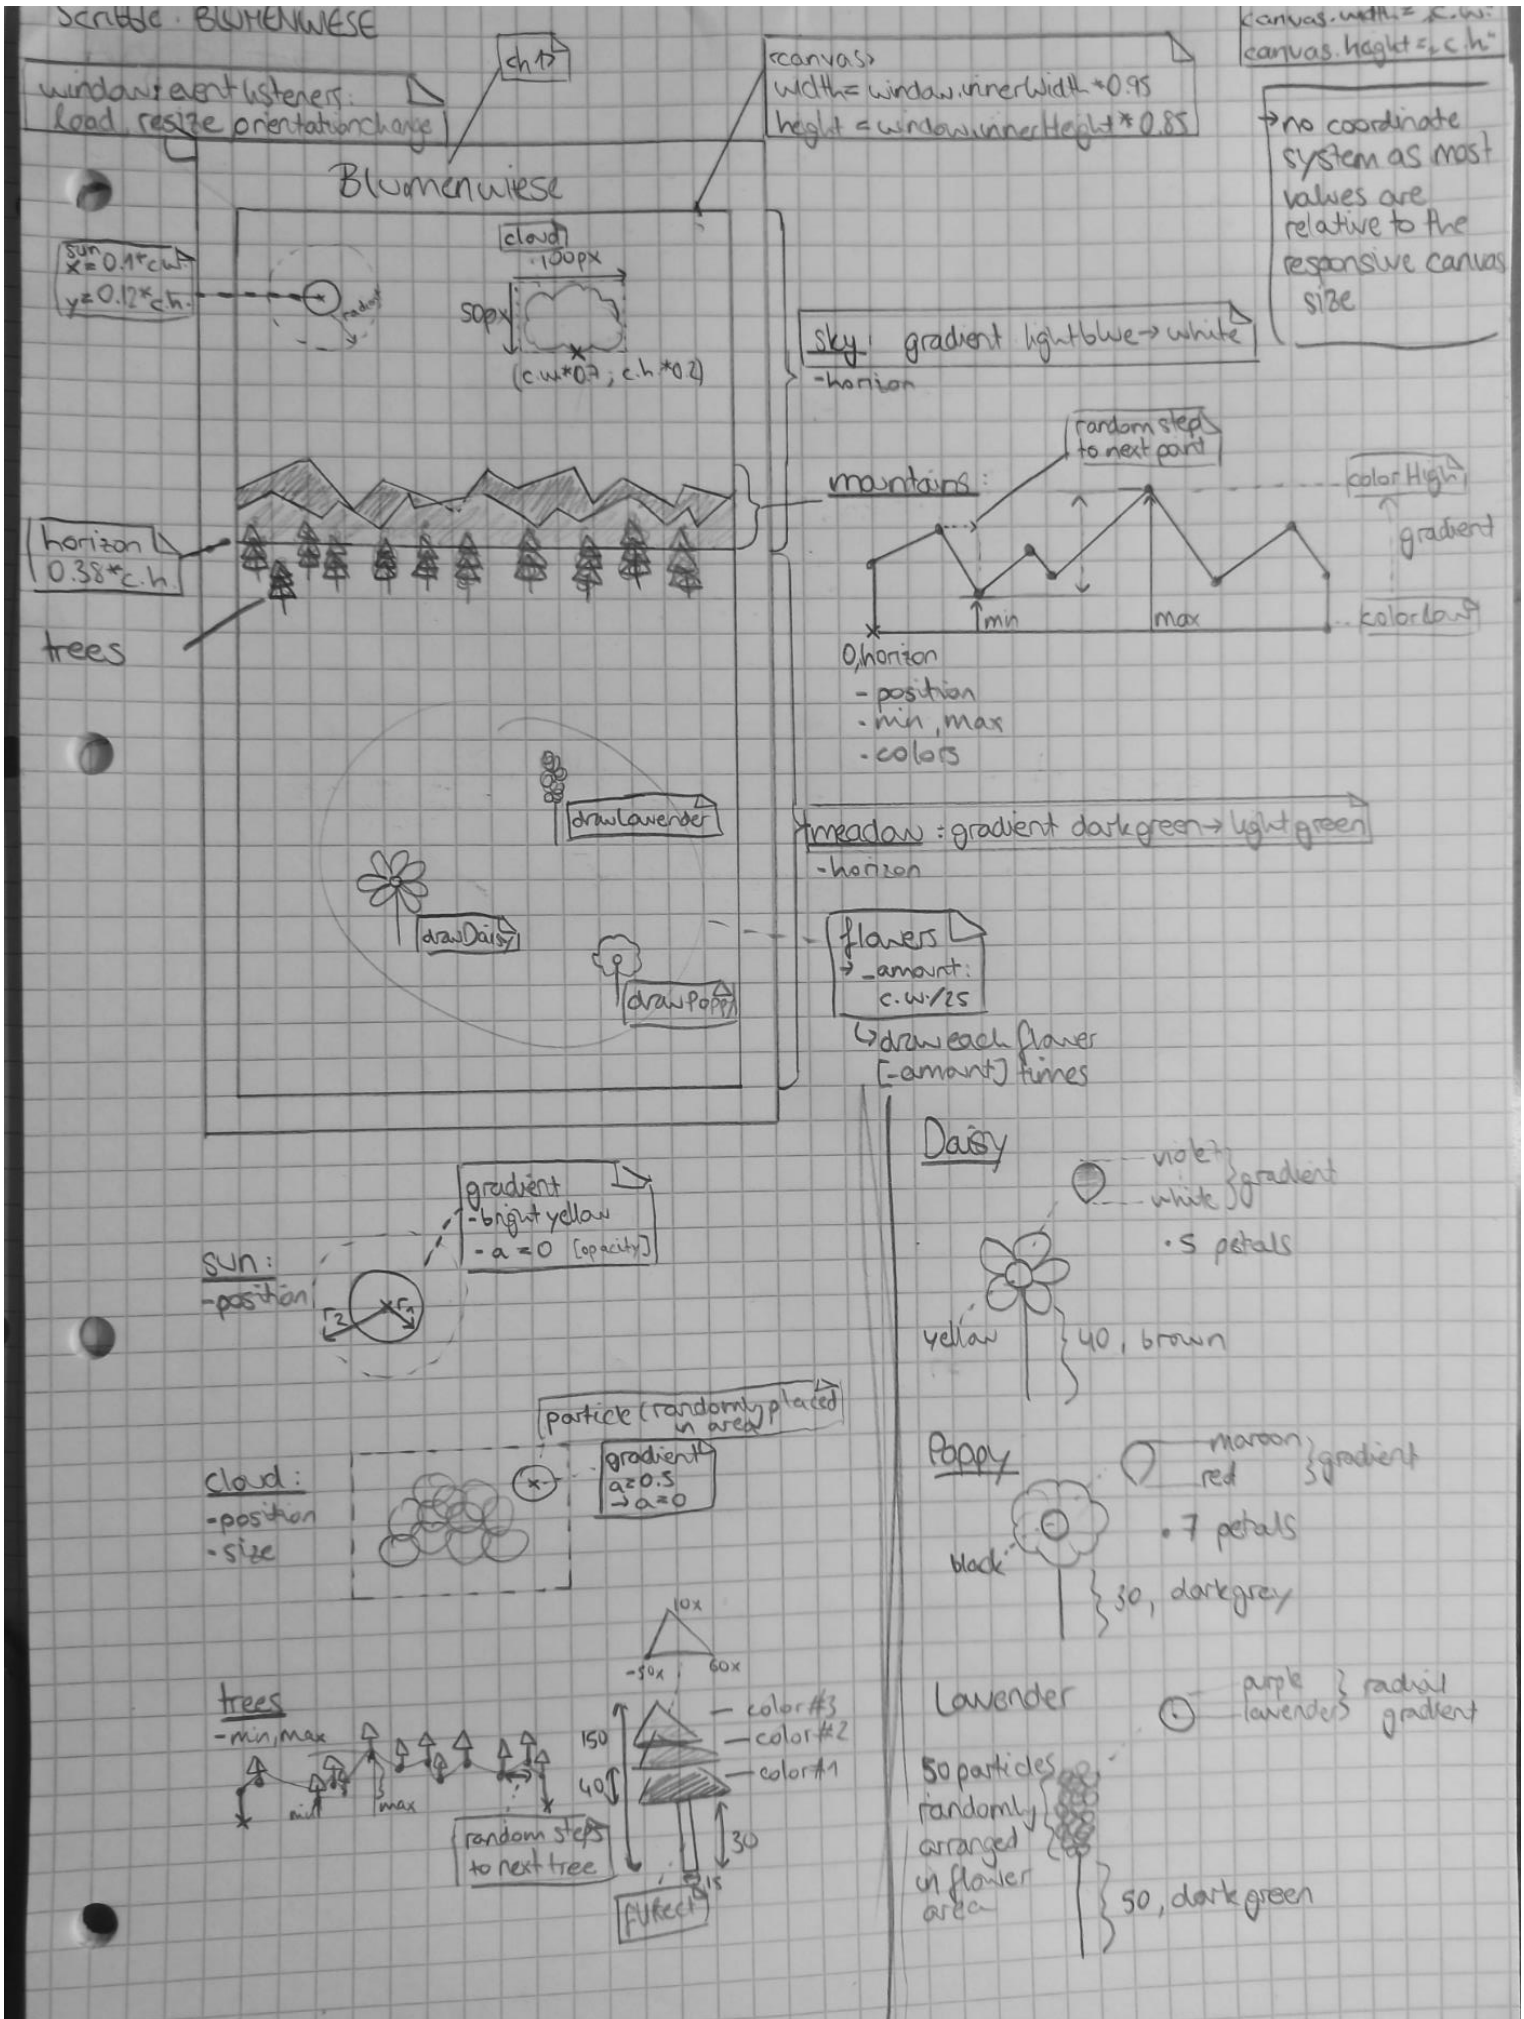 Scribble: BLUMENWIESE
canvas.width = "c.w."
canvas.height = "c.h"
<h1>
<canvas>
width = window.innerWidth * 0.95
height = window.innerHeight * 0.85
window: event listeners:
load, resize, orientationchange
→ no coordinate
system as most
values are
relative to the
responsive canvas
size
Blumenwiese
sun
x = 0.1 * c.w.
y = 0.12 * c.h.
radius
cloud
100px
50px
(c.w.*0.7 ; c.h.*0.2)
sky: gradient lightblue → white
-horizon
random step
to next point
mountains:
colorHigh
gradient
colorLow
min
max
0,horizon
- position
- min, max
- colors
horizon
0.38*c.h.
trees
drawLavender
meadow: gradient darkgreen → lightgreen
-horizon
drawDaisy
drawPoppy
flowers
→ _amount:
c.w./25
↳ draw each flower
[_amount] times
gradient
-bright yellow
- a = 0 [opacity]
sun:
-position
r2
r1
particle (randomly placed
in area)
gradient
a=0.5
→ a=0
cloud:
-position
-size
trees
-min, max
min
max
random steps
to next tree
10x
-50x
60x
color#3
color#2
color#1
150
40
30
15
fillRect
Daisy
violet
white
gradient
• 5 petals
yellow
40, brown
Poppy
maroon
red
gradient
• 7 petals
black
30, darkgrey
Lavender
purple
lavender
radial
gradient
50 particles
randomly
arranged
in flower
area
50, darkgreen